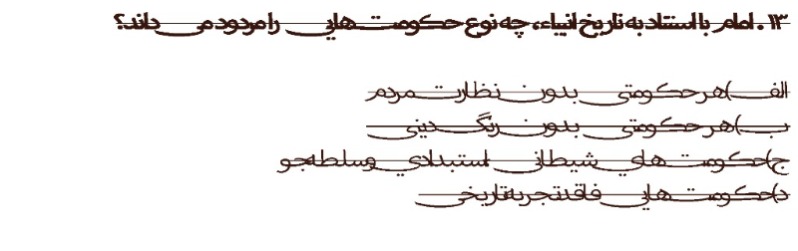 ۱۳. امام با استناد به تاریخ انبیاء، چه نوع حکومت‌هایی را مردود می داند؟
الف)هر حکومتی بدون نظارت مردم
ب)هر حکومتی بدون رنگ دینی
ج)حکومت های شیطانی استبدادی و سلطه‌جو
د)حکومت‌هایی فاقد تجربه تاریخی